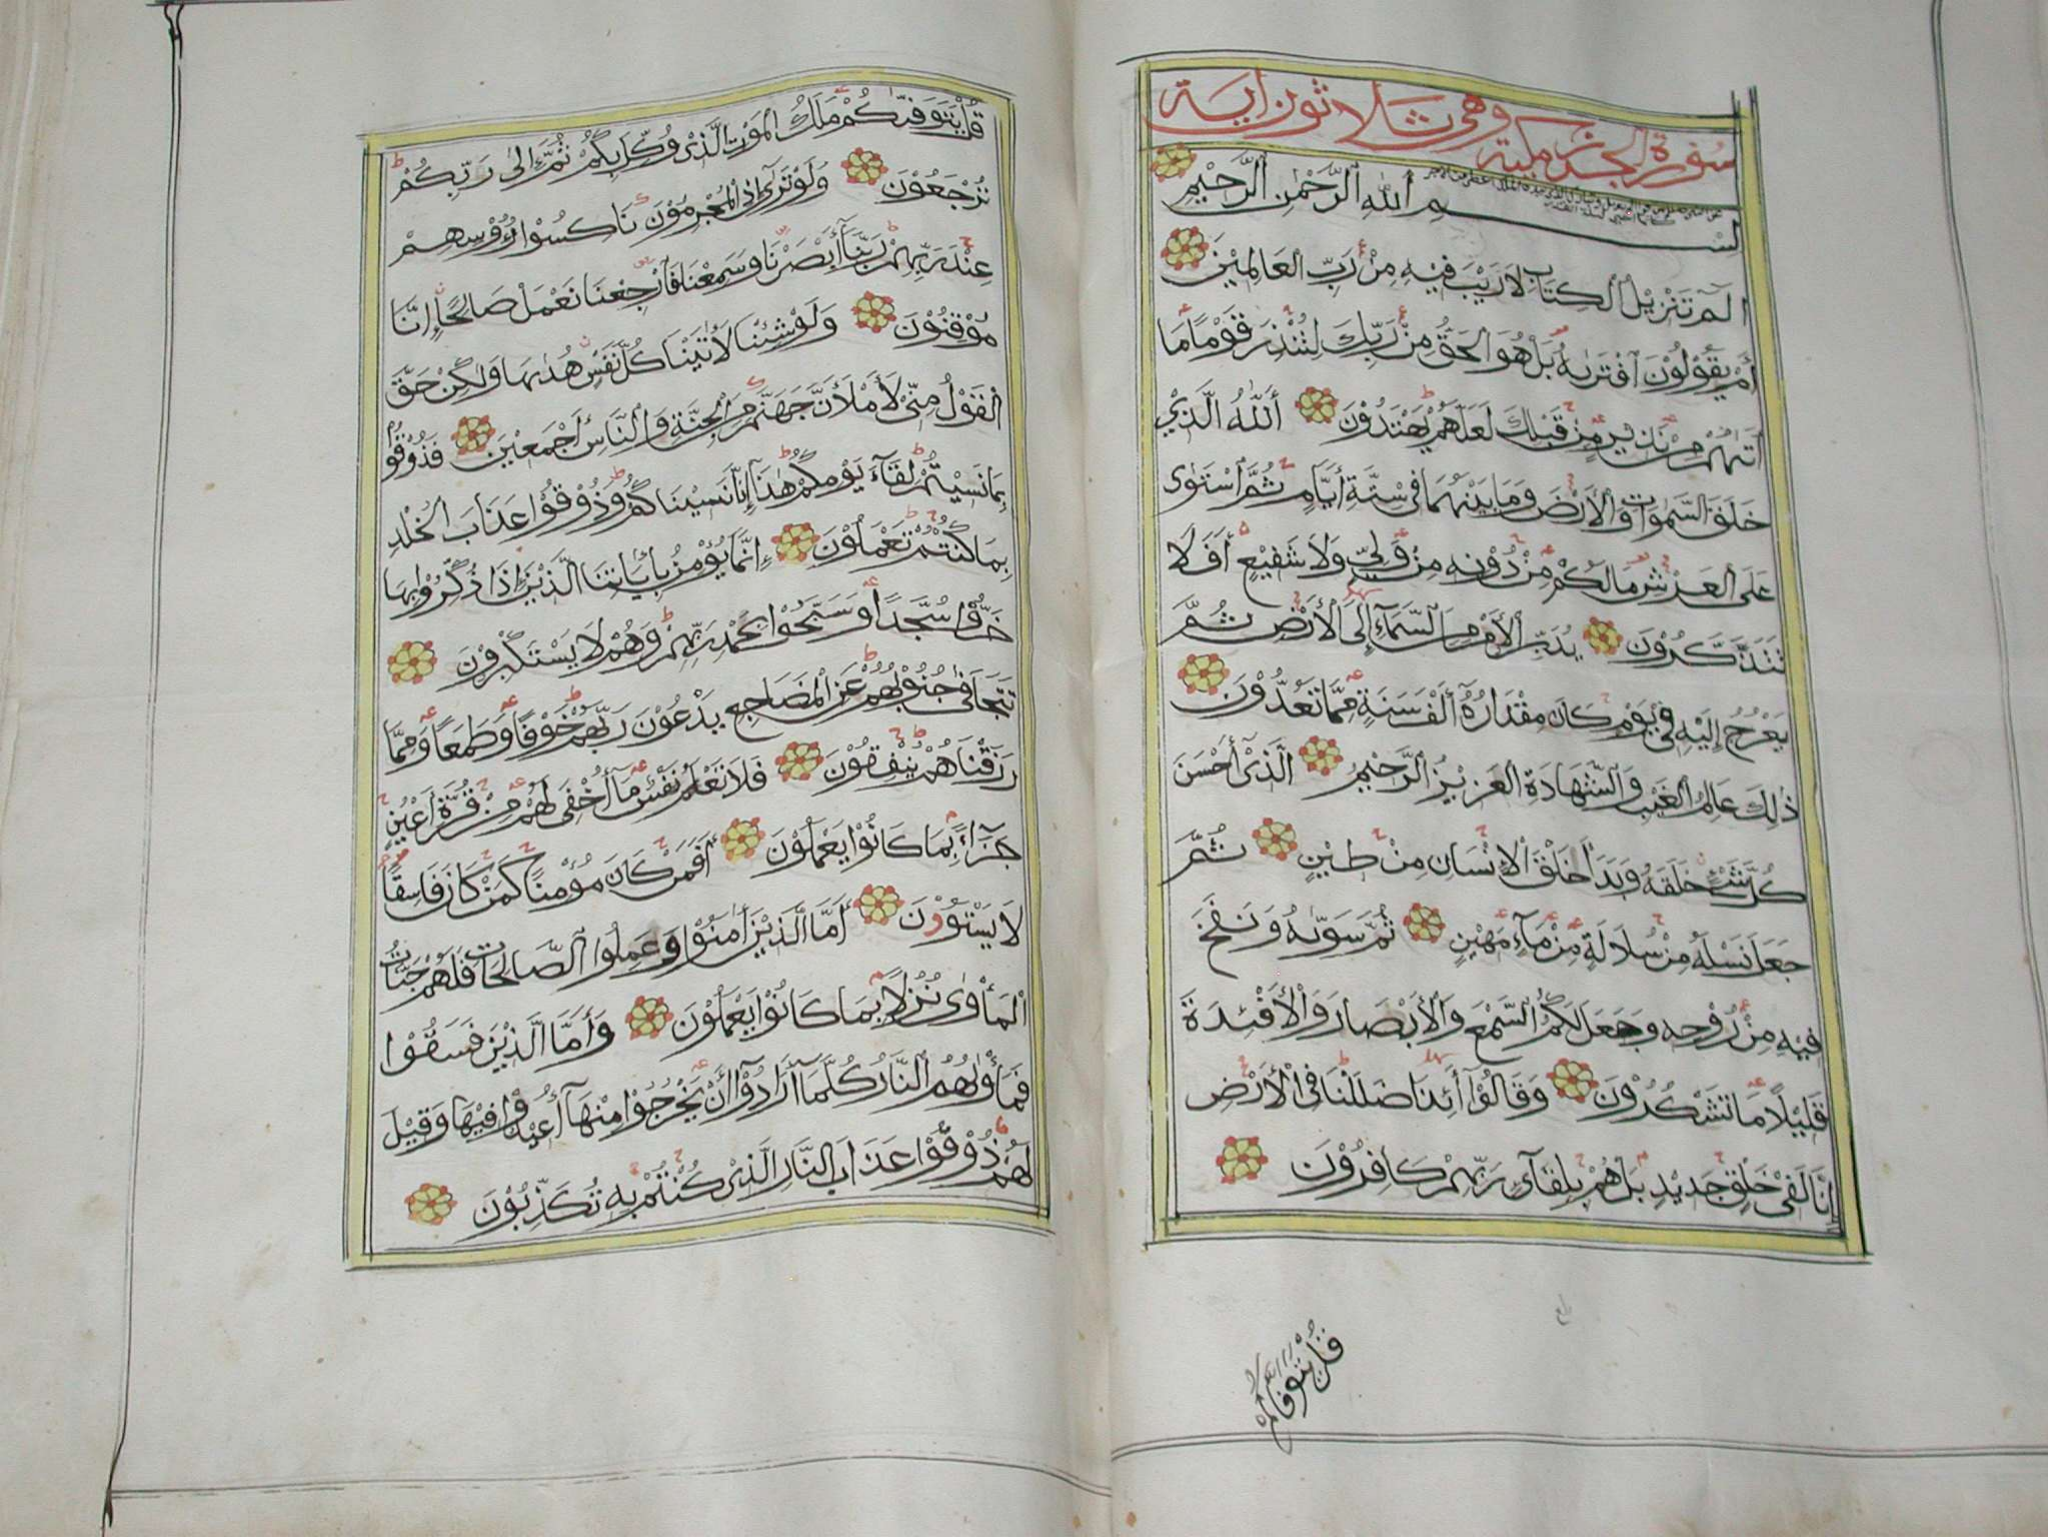 سورة الجرز مكية وهي ثلاثون اية
بِسْــــــمِ ٱللهِ ٱلرَّحْمٰنِ ٱلرَّحِيْمِ
الٓمٓ تَنْزِيْلُ ٱلْكِتَابِ لَا رَيْبَ فِيْهِ مِنْ رَبِّ ٱلْعَالَمِيْنَ
أَمْ يَقُوْلُوْنَ ٱفْتَرٰىهُ بَلْ هُوَ ٱلْحَقُّ مِنْ رَبِّكَ لِتُنْذِرَ قَوْمًا مَا
أَتٰىهُمْ مِنْ نَذِيْرٍ مِنْ قَبْلِكَ لَعَلَّهُمْ يَهْتَدُوْنَ أَللّٰهُ ٱلَّذِيْ
خَلَقَ ٱلسَّمٰوَاتِ وَٱلْأَرْضَ وَمَا بَيْنَهُمَا فِيْ سِتَّةِ أَيَّامٍ ثُمَّ ٱسْتَوٰى
عَلَى ٱلْعَرْشِ مَا لَكُمْ مِنْ دُوْنِهِ مِنْ وَلِيٍّ وَلَا شَفِيْعٍ أَفَلَا
تَتَذَكَّرُوْنَ يُدَبِّرُ ٱلْأَمْرَ مِنَ ٱلسَّمَآءِ إِلَى ٱلْأَرْضِ ثُمَّ
يَعْرُجُ إِلَيْهِ فِيْ يَوْمٍ كَانَ مِقْدَارُهُٓ أَلْفَ سَنَةٍ مِمَّا تَعُدُّوْنَ
ذٰلِكَ عَالِمُ ٱلْغَيْبِ وَٱلشَّهَادَةِ ٱلْعَزِيْزُ ٱلرَّحِيْمُ ٱلَّذِيْٓ أَحْسَنَ
كُلَّ شَيْءٍ خَلَقَهُ وَبَدَأَ خَلْقَ ٱلْإِنْسَانِ مِنْ طِيْنٍ ثُمَّ
جَعَلَ نَسْلَهُ مِنْ سُلَالَةٍ مِنْ مَآءٍ مَهِيْنٍ ثُمَّ سَوّٰىهُ وَنَفَخَ
فِيْهِ مِنْ رُوْحِهِ وَجَعَلَ لَكُمُ ٱلسَّمْعَ وَٱلْأَبْصَارَ وَٱلْأَفْئِدَةَ
قَلِيْلًا مَا تَشْكُرُوْنَ وَقَالُوْٓا أَئِذَا ضَلَلْنَا فِي ٱلْأَرْضِ
إِنَّا لَفِيْ خَلْقٍ جَدِيْدٍ بَلْ هُمْ بِلِقَآئِ رَبِّهِمْ كَافِرُوْنَ
قل يتوفاكم
قُلْ يَتَوَفّٰىكُمْ مَلَكُ ٱلْمَوْتِ ٱلَّذِيْ وُكِّلَ بِكُمْ ثُمَّ إِلٰى رَبِّكُمْ
تُرْجَعُوْنَ وَلَوْ تَرٰىٓ إِذِ ٱلْمُجْرِمُوْنَ نَاكِسُوْا رُءُوْسِهِمْ
عِنْدَ رَبِّهِمْ رَبَّنَآ أَبْصَرْنَا وَسَمِعْنَا فَٱرْجِعْنَا نَعْمَلْ صَالِحًا إِنَّا
مُوْقِنُوْنَ وَلَوْ شِئْنَا لَاٰتَيْنَا كُلَّ نَفْسٍ هُدٰىهَا وَلٰكِنْ حَقَّ
ٱلْقَوْلُ مِنِّيْ لَأَمْلَأَنَّ جَهَنَّمَ مِنَ ٱلْجِنَّةِ وَٱلنَّاسِ أَجْمَعِيْنَ فَذُوْقُوْا
بِمَا نَسِيْتُمْ لِقَآءَ يَوْمِكُمْ هٰذَآ إِنَّا نَسِيْنَاكُمْ وَذُوْقُوْا عَذَابَ ٱلْخُلْدِ
بِمَا كُنْتُمْ تَعْمَلُوْنَ إِنَّمَا يُؤْمِنُ بِاٰيَاتِنَا ٱلَّذِيْنَ إِذَا ذُكِّرُوْا بِهَا
خَرُّوْا سُجَّدًا وَسَبَّحُوْا بِحَمْدِ رَبِّهِمْ وَهُمْ لَا يَسْتَكْبِرُوْنَ
تَتَجَافٰى جُنُوْبُهُمْ عَنِ ٱلْمَضَاجِعِ يَدْعُوْنَ رَبَّهُمْ خَوْفًا وَطَمَعًا وَمِمَّا
رَزَقْنَاهُمْ يُنْفِقُوْنَ فَلَا تَعْلَمُ نَفْسٌ مَآ أُخْفِيَ لَهُمْ مِنْ قُرَّةِ أَعْيُنٍ
جَزَآءً بِمَا كَانُوْا يَعْمَلُوْنَ أَفَمَنْ كَانَ مُؤْمِنًا كَمَنْ كَانَ فَاسِقًا
لَا يَسْتَوُوْنَ أَمَّا ٱلَّذِيْنَ اٰمَنُوْا وَعَمِلُوا ٱلصَّالِحَاتِ فَلَهُمْ جَنَّاتُ
ٱلْمَأْوٰى نُزُلًا بِمَا كَانُوْا يَعْمَلُوْنَ وَأَمَّا ٱلَّذِيْنَ فَسَقُوْا
فَمَأْوٰىهُمُ ٱلنَّارُ كُلَّمَآ أَرَادُوْٓا أَنْ يَخْرُجُوْا مِنْهَآ أُعِيْدُوْا فِيْهَا وَقِيْلَ
لَهُمْ ذُوْقُوْا عَذَابَ ٱلنَّارِ ٱلَّذِيْ كُنْتُمْ بِهِ تُكَذِّبُوْنَ